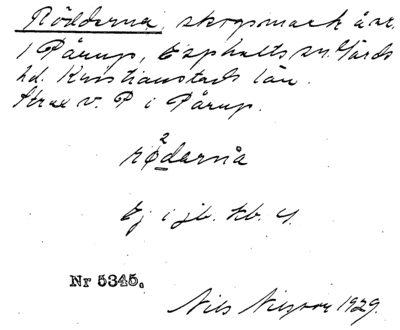 Rödderna, skogsmark å ar.
1 Pårup, Espholts sn. Gärds
hd. Kristianstads län.
Strax v. P i Pårup.
rødarna
Ej i jb. kb. 4.
Nr 5345.
Nils Nilsson 1929.